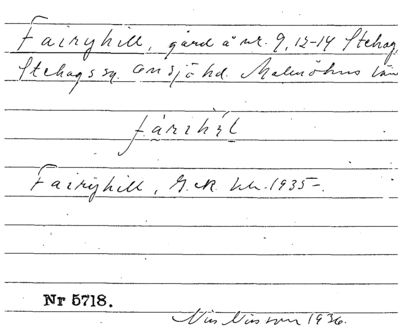 Fairyhill, gård å nr. 9, 12-14 Stehag,
Stehags sn. Onsjö hd. Malmöhus län
färihil
Fairyhill, G. R. 1935-.
Nr 5718.
Nils Nilsson 1936.